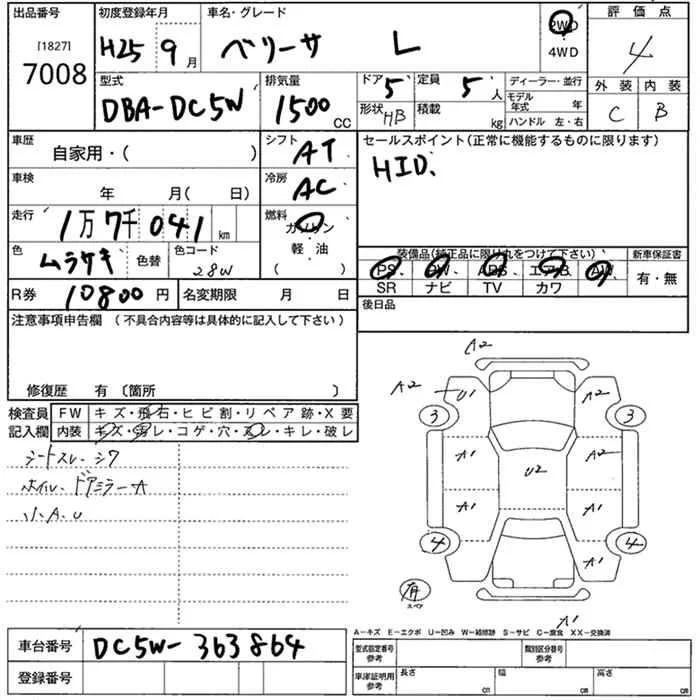 出品番号 初度登録年月 車名・グレード 2WD 評価点
[1827] H25 9月 ベリーサ L 4WD 4
7008
型式 排気量 ドア 5 定員 5人 ディーラー・並行 外装 内装
DBA-DC5W 1500 CC 形状 HB 積載 kg モデル年式 年 C B
ハンドル 左・右
車歴 シフト AT セールスポイント(正常に機能するものに限ります)
自家用・( ) HID、
車検 年 月( 日) 冷房 AC
走行 1万7千041 km 燃料 ガソリン
軽・油
( )
色 ムラサキ 色替 色コード 28W
装備品(純正品に限り丸をつけて下さい) 新車保証書
PS、PW、ABS、エアB、AW、 有・無
SR ナビ TV カワ
R券 10800円 名変期限 月 日 後日品
注意事項申告欄(不具合内容等は具体的に記入して下さい)
修復歴 有〔箇所 〕
検査員 FW キズ・飛石・ヒビ割・リペア跡・X要
記入欄 内装 キズ・汚レ・コゲ・穴・スレ・キレ・破レ
シートスレ、シワ
ホイル、ドアミラーA
小A、U
A2
A2 U1
3 3
A1 A2
U2
A1 A1
4 4
A1
有
スペア
A1
A-キズ E-エクボ U-凹み W-補修跡 S-サビ C-腐食 XX-交換済
車台番号 DC5W-363864
登録番号
型式指定番号 参考 類別区分番号 参考
車庫証明用 参考 長さ cm 幅 cm 高さ cm